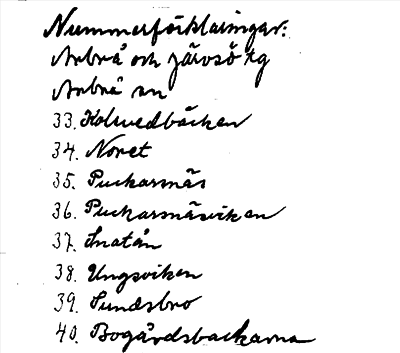 Nummerförklaringar:
Arbrå och Järvsö tg
Arbrå sn
33. Kolvedbäcken
34. Noret
35. Puckarnäs
36. Puckarnäsviken
37.
38. Ungsviken
39. Sundsbro
40. Bogårdsbackarna